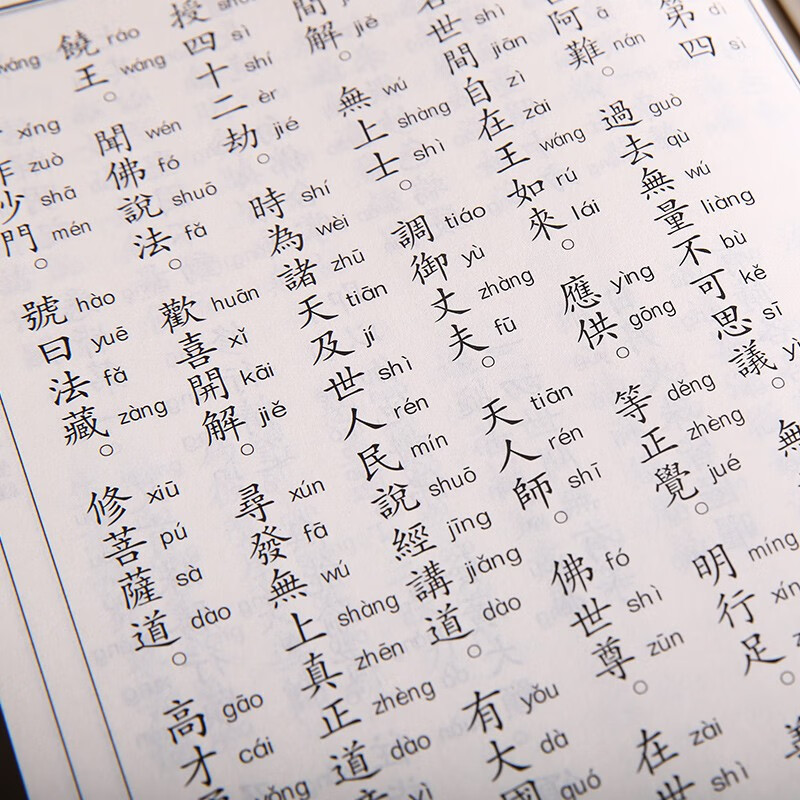 第四
dì sì
阿難。過去無量不可思議。無
ā nán guò qù wú liàng bù kě sī yì
世間自在王如來。應供。等正覺。明行足。善
shì jiān zì zài wáng rú lái yìng gōng děng zhèng jué míng
間解。無上士。調御丈夫。天人師。佛世尊。在世
jiě wú shàng shì tiáo yù zhàng fū tiān rén shī fó shì zūn zài shì
授四十二劫。時為諸天及世人民說經講道。有大國
sì shí èr jié shí wèi zhū tiān jí shì rén mín shuō jīng jiǎng dào yǒu dà guó
饒王。聞佛說法。歡喜開解。尋發無上真正道
ráo wáng wén fó shuō fǎ huān xǐ kāi jiě xún fā wú shàng zhēn zhèng dào yì
作沙門。號曰法藏。修菩薩道。高才
xíng zuò shā mén hào yuē fǎ zàng xiū pú sà dào gāo cái yǒng